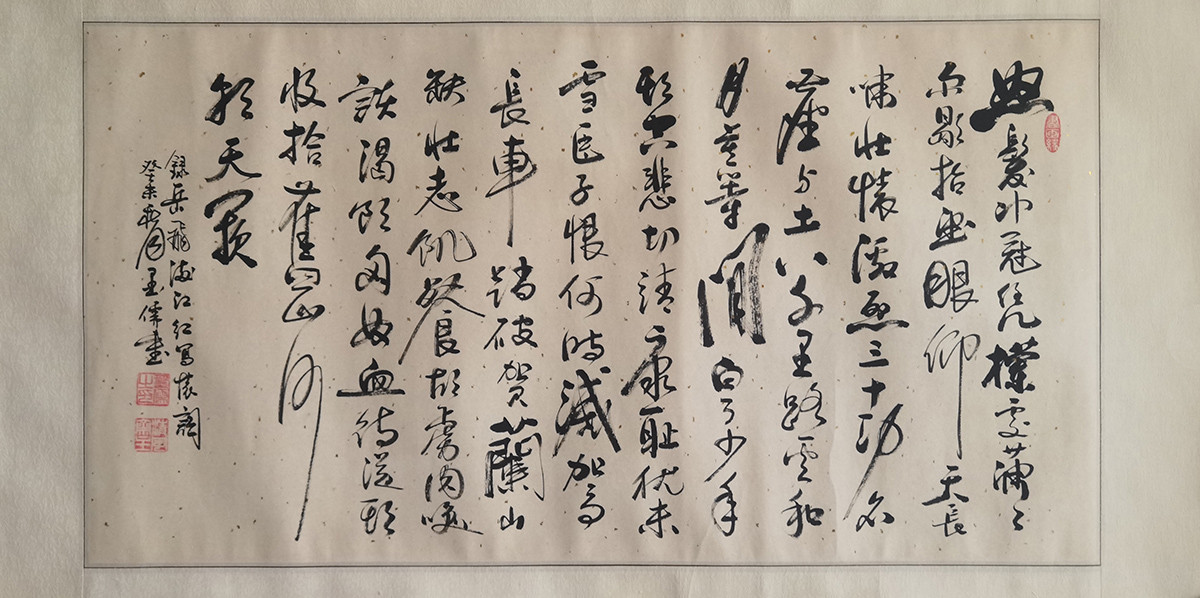 怒髮冲冠凭欄處瀟〻
雨歇抬望眼仰天長
嘯壯懷激烈三十功名
塵与土八千里路雲和
月莫等閒白了少年
頭空悲切靖康耻猶未
雪臣子恨何時滅駕
長車踏破賀蘭山
缺壯志飢餐胡虜肉笑
談渴飲匈奴血待從頭
收拾舊山河
朝天闕
錄岳飛滿江紅寫懷詞
癸未秋月王偉書